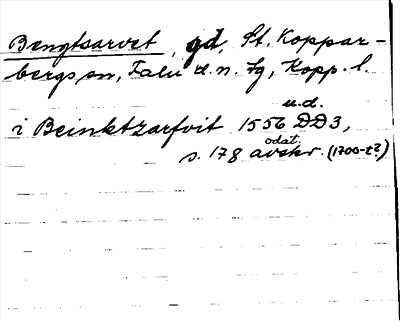 Bengtsarvet, gd, St. Koppar-
bergs sn, Falu d.n. fg, Kopp. l.
u.d.
i Beinktzarfvit 1556 DD3,
odat.
s. 178 avskr. (1700-t?)